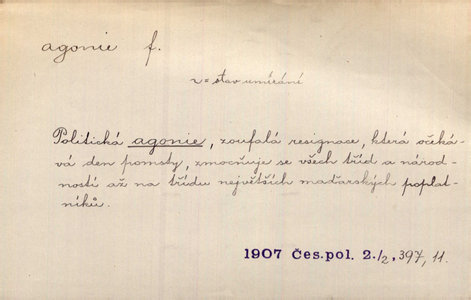 agonie f.
= stav umírání
Politická agonie, zoufalá resignace, která očeká-
vá den pomsty, zmocňuje se všech tříd a národ-
ností až na třídu největších maďarských poplat-
níků.
1907 Čes. pol. 2./2, 397, 11.